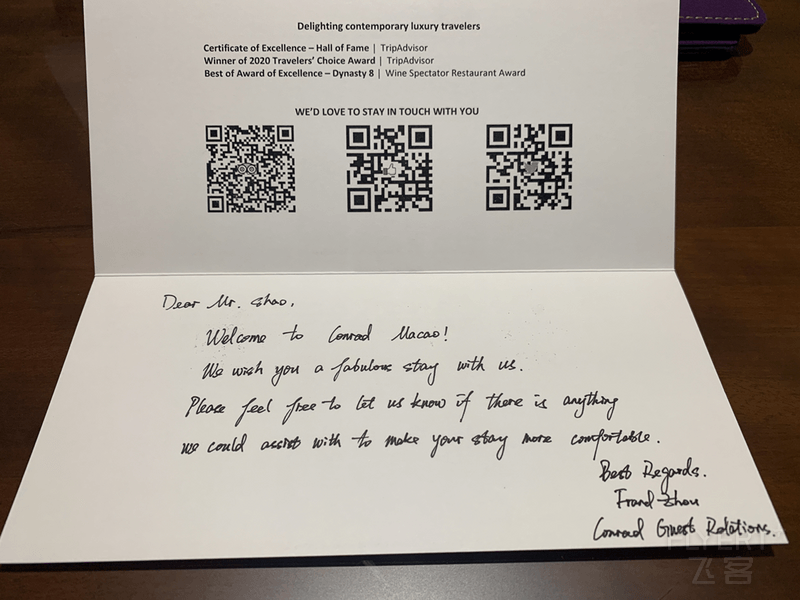 Delighting contemporary luxury travelers
Certificate of Excellence – Hall of Fame | TripAdvisor
Winner of 2020 Travelers' Choice Award | TripAdvisor
Best of Award of Excellence – Dynasty 8 | Wine Spectator Restaurant Award
WE'D LOVE TO STAY IN TOUCH WITH YOU
Dear Mr. Shao,
Welcome to Conrad Macao!
We wish you a fabulous stay with us.
Please feel free to let us know if there is anything
we could assist with to make your stay more comfortable.
Best Regards.
Zhou
Conrad Guest Relations.
FLYERT
飞客